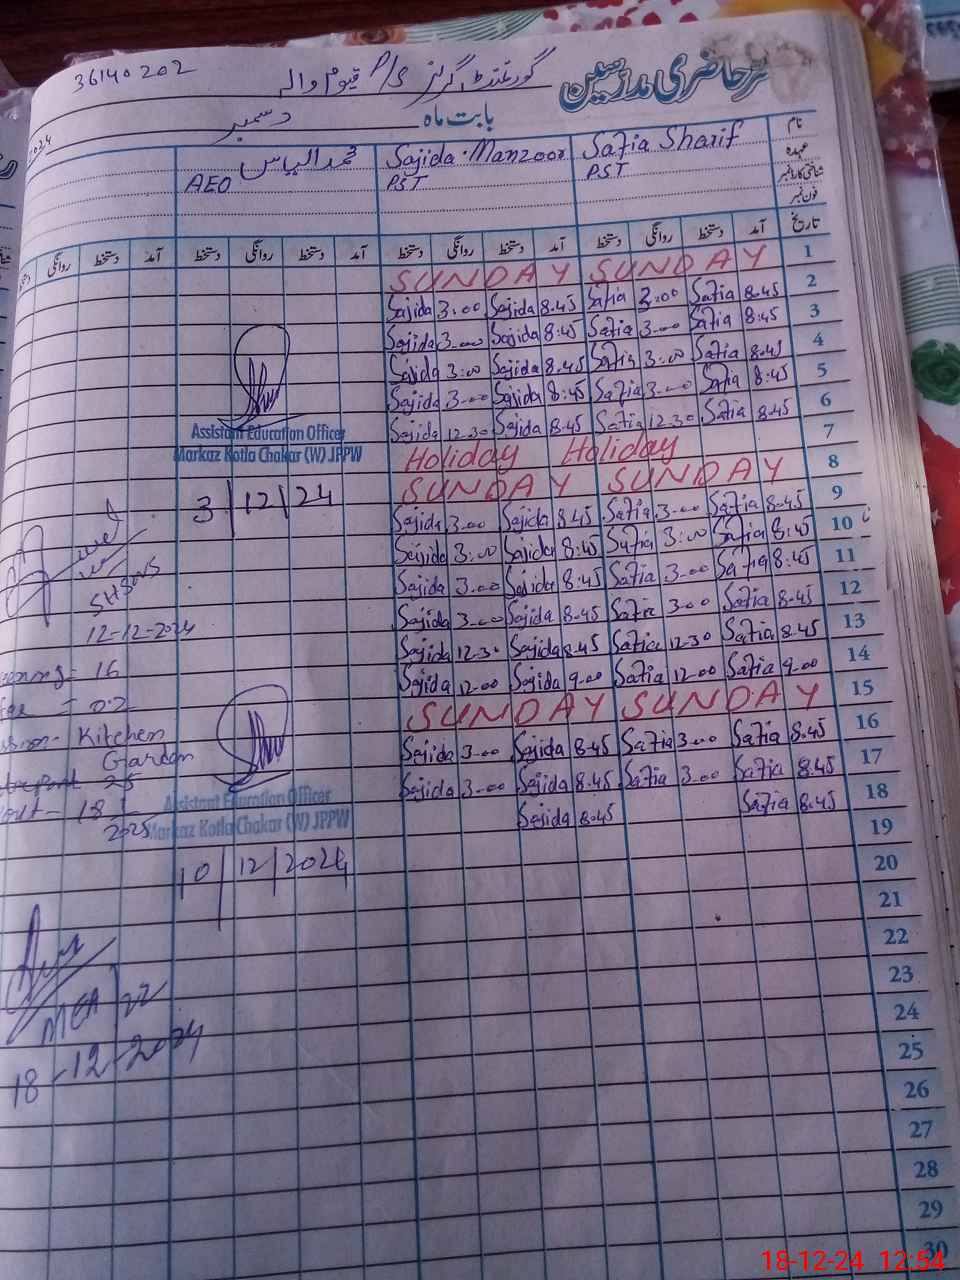 36140202
گورنمنٹ گرلز P/S قیوم والہ
رجسٹر حاضری مدرسین
بابت ماہ دسمبر
نام Safia Sharif Sajida Manzoor محمد الیاس
عہدہ PST PST AEO
شناختی کارڈ نمبر
فون نمبر
تاریخ آمد دستخط روانگی دستخط آمد دستخط روانگی دستخط آمد دستخط روانگی دستخط آمد دستخط روانگی
SUNDAY SUNDAY 1
Sajida 3:00 Sajida 8.45 Safia 3:00 Safia 8.45 2
Sajida 3-00 Sajida 8:45 Safia 3-00 Safia 8:45 3
Sajida 3:00 Sajida 8.45 Safia 3:00 Safia 8.45 4
Sajida 3-00 Sajida 8:45 Safia 3-00 Safia 8:45 5
Sajida 12-30 Sajida 8:45 Safia 12-30 Safia 8.45 6
Holiday Holiday 7
SUNDAY SUNDAY 8
Sajida 3-00 Sajida 8.45 Safia 3-00 Safia 8.45 9
Sajida 3:00 Sajida 8:45 Safia 3:00 Safia 8:45 10
Sajida 3-00 Sajida 8:45 Safia 3-00 Safia 8:45 11
Sajida 3-00 Sajida 8.45 Safia 3-00 Safia 8.45 12
Sajida 12-30 Sajida 8.45 Safia 12-30 Safia 8.45 13
Sajida 12-00 Sajida 9-00 Safia 12-00 Safia 9-00 14
SUNDAY SUNDAY 15
Sajida 3-00 Sajida 8.45 Safia 3-00 Safia 8.45 16
Sajida 3-00 Sajida 8.45 Safia 3-00 Safia 8.45 17
Sajida 8.45 Safia 8.45 18
19
20
21
22
23
24
25
26
27
28
29
30
Assistant Education Officer
Markaz Kotla Chakar (W) JPPW
3/12/24
12-12-2024
= 16
= 02
Kitchen
Garden
25
- 18
2025
Assistant Education Officer
Markaz Kotla Chakar (W) JPPW
10/12/2024
MEA 22
18-12-2024
18-12-24 12:54